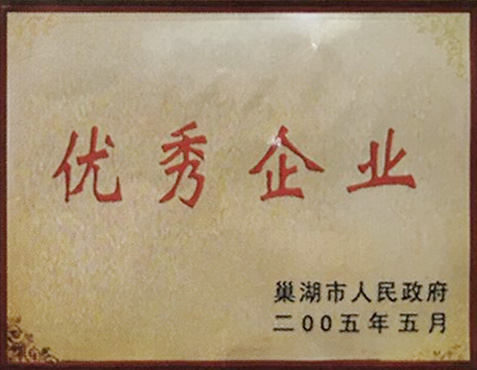 优秀企业
巢湖市人民政府
二00五年五月